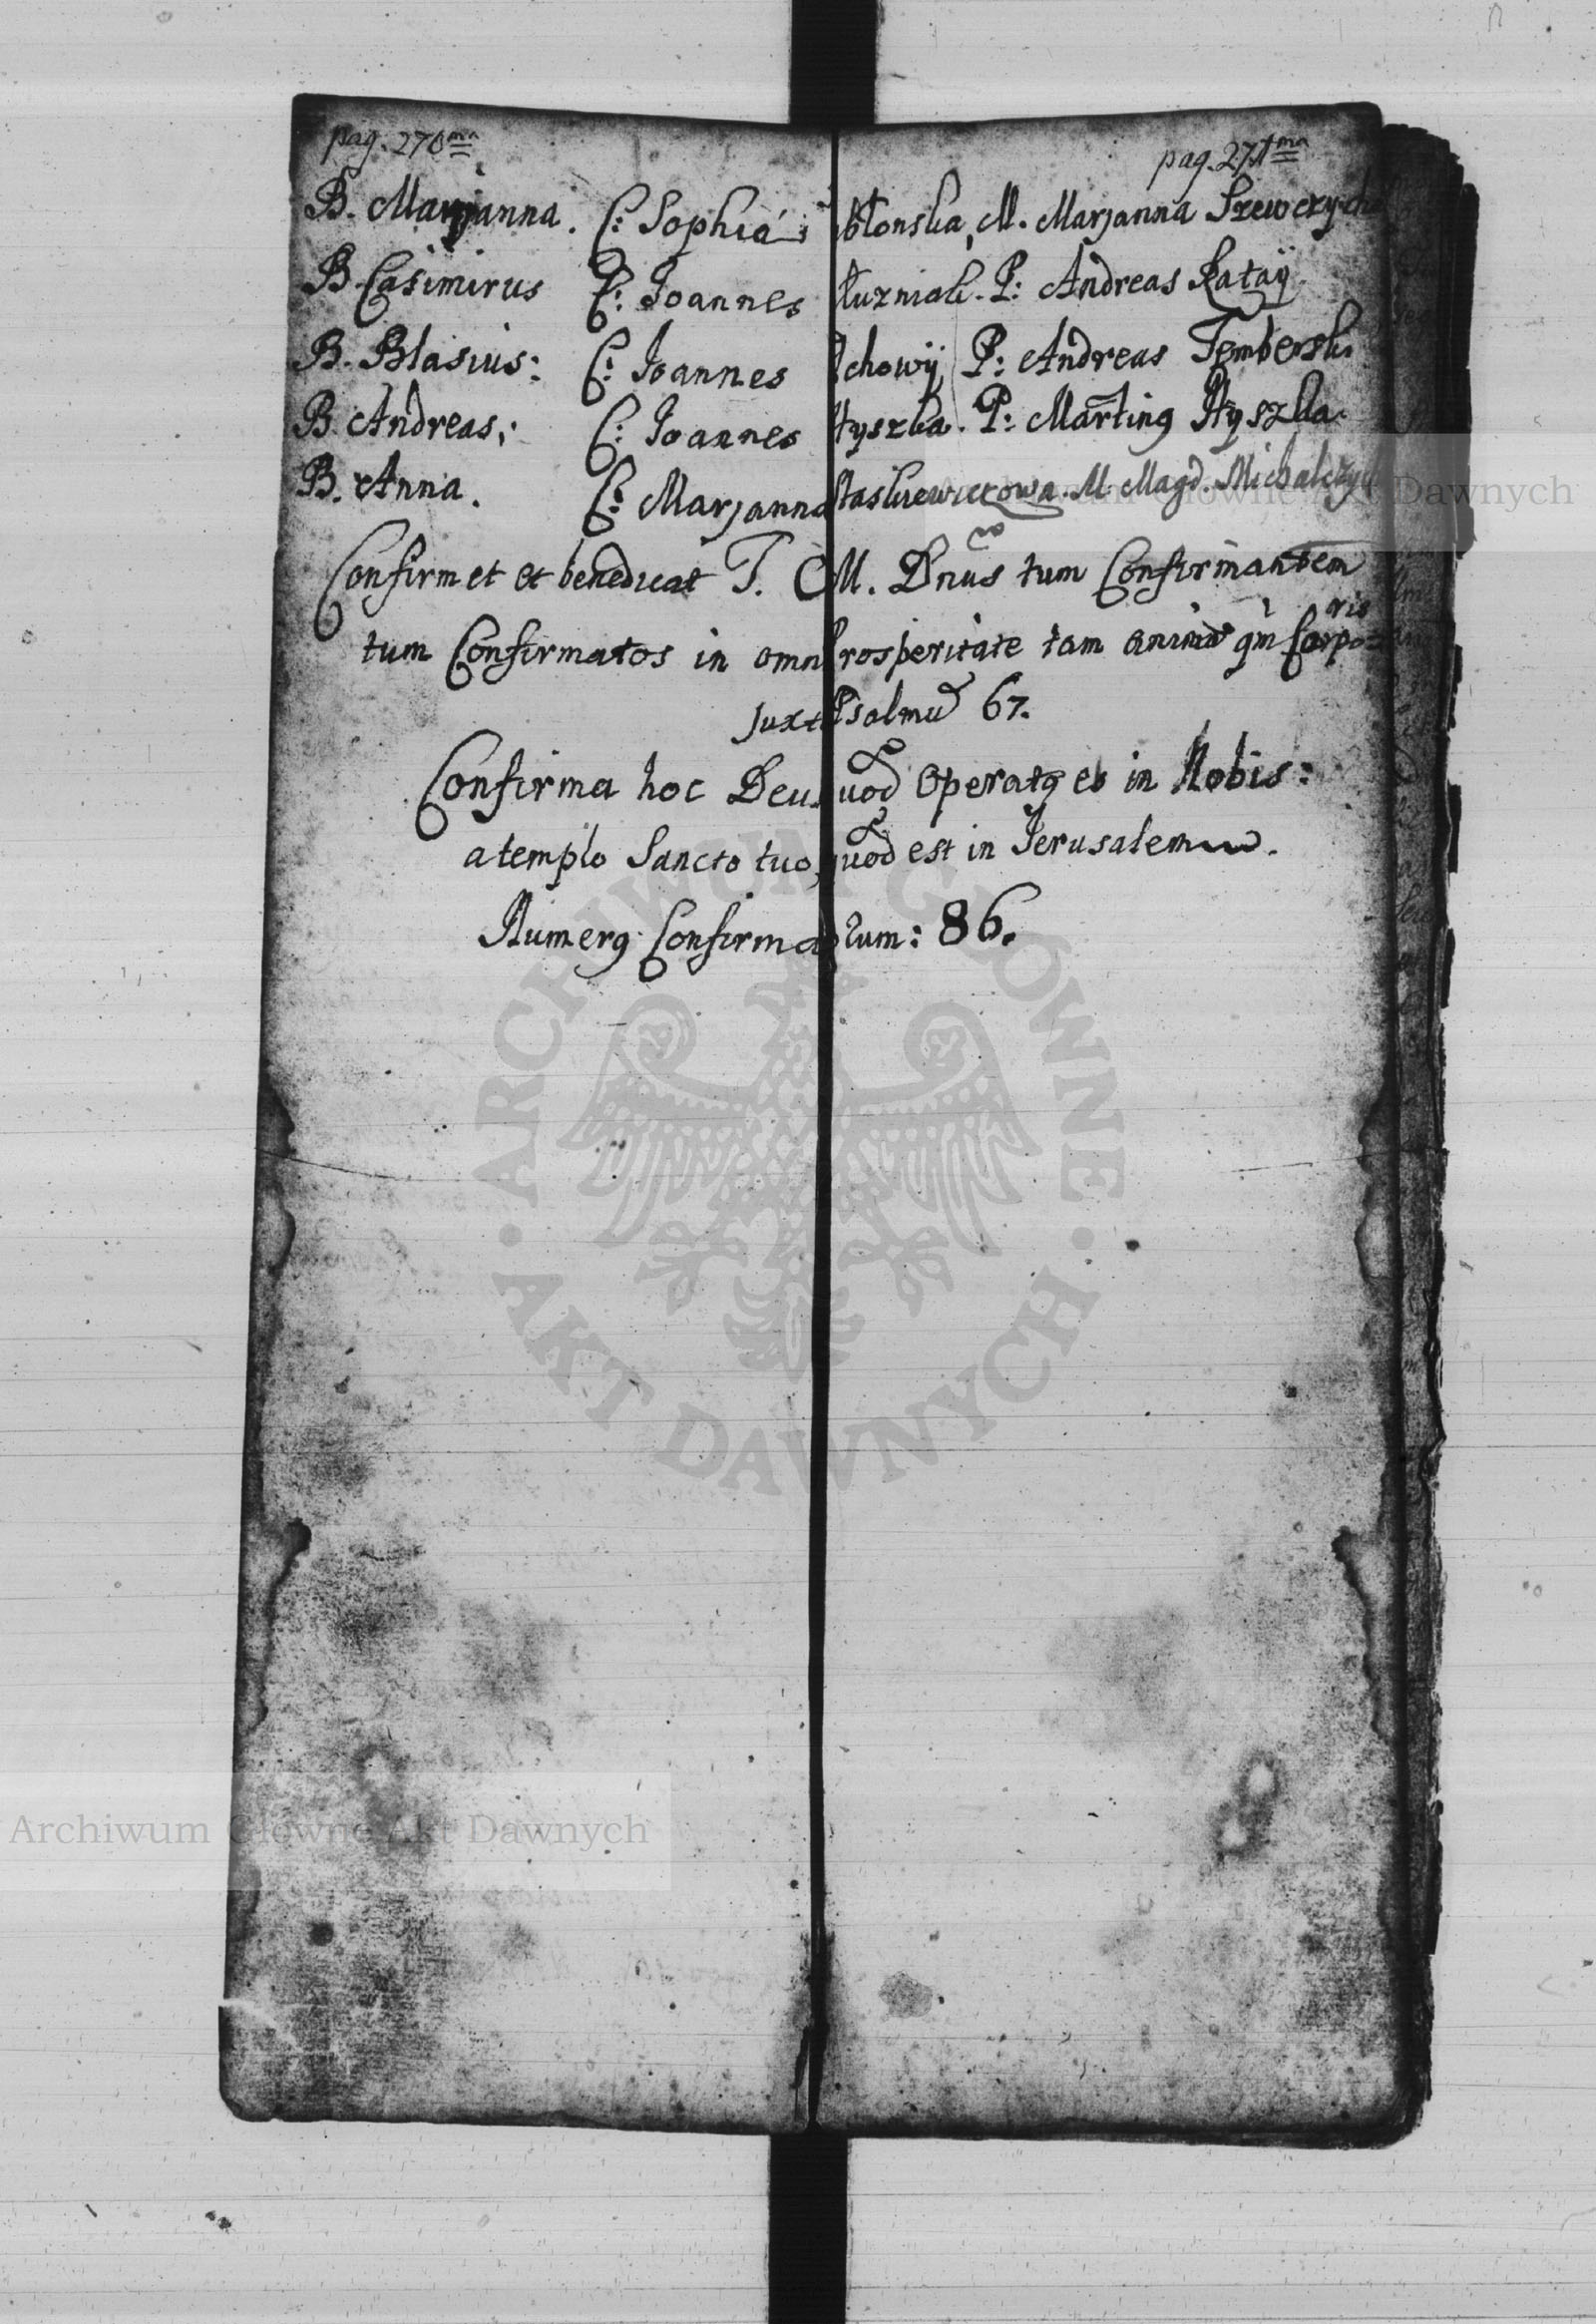 pag. 270ma
pag. 271ma
B. Marjanna. C: Sophia błonska, M. Marjanna Szewczy
B. Casimirus C: Joannes łuzniak. P: Andreas Rataÿ
B. Blasius: C: Joannes chowÿ P: Andreas Temberski
B. Andreas; C: Joannes Hyszka. P: Marting Hyszka.
B. Anna. C: Marjanna staskiewiczowa. M. Magd. Michalczy
Confirmet et benedicat T. O M. Dnus tum Confirmantem
tum Confirmatos in omni rosperitate tam animæ qm Corporis
Juxt Psalmū 67.
Confirma hoc Deus uod Operatg es in Nobis:
a templo Sancto tuo, quod est in Jerusalem.
Numerg Confirma rum: 86.
ARCHIWUM GŁÓWNE
AKT DAWNYCH
Archiwum Główne Akt Dawnych
Archiwum Główne Akt Dawnych